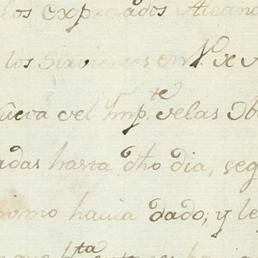 los expresados Alcan
los Sirvientes en N.
nueva del Imp.te de las Ob
adas hasta dho dia, seg
como havia dado; y le